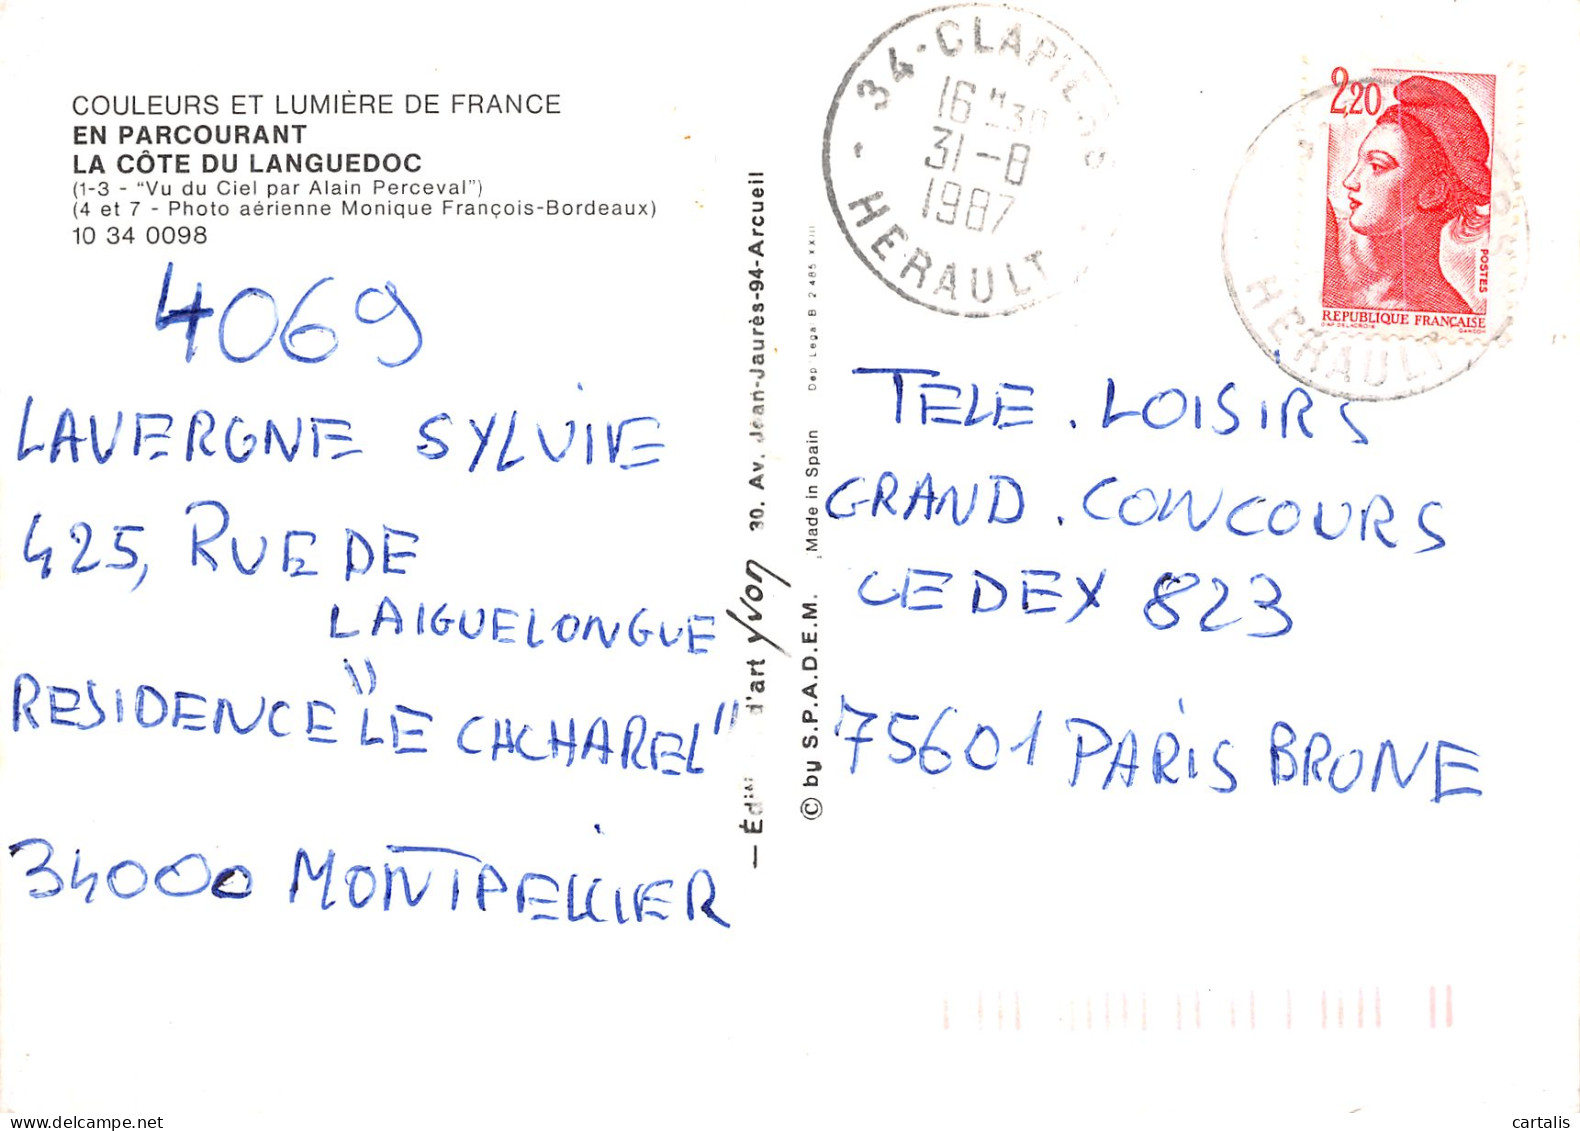 COULEURS ET LUMIÈRE DE FRANCE
EN PARCOURANT
LA CÔTE DU LANGUEDOC
(1-3 - "Vu du Ciel par Alain Perceval")
(4 et 7 - Photo aérienne Monique François-Bordeaux)
10 34 0098
4069
LAVERGNE SYLVIE
425, RUE DE
LAIGUELONGUE
RESIDENCE "LE CHCHAREL"
34000 MONTPELLIER
— Édi d'art yvon 30. Av. Jean-Jaurès-94-Arcueil
© by S.P.A.D.E.M. Made in Spain Dep. Legal B 2 485 XXIII
34-CLAPIERS
16 H 30
31-8
1987
HERAULT
2,20
POSTES
REPUBLIQUE FRANÇAISE
D'AP. DELACROIX GANDON
HERAULT
TELE. LOISIRS
GRAND. CONCOURS
CEDEX 823
75601 PARIS BRUNE
delcampe.net
cartalis